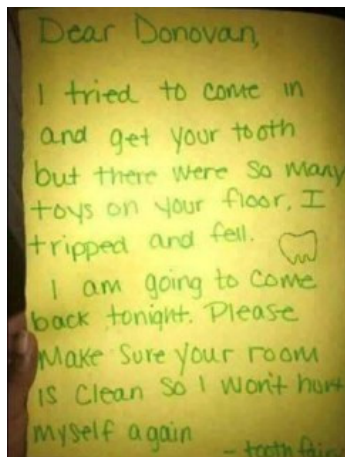 Dear Donovan,
I tried to come in
and get your tooth
but there were so many
toys on your floor, I
tripped and fell.
I am going to come
back tonight. Please
Make Sure your room
is Clean so I won't hurt
myself again
- tooth fairy